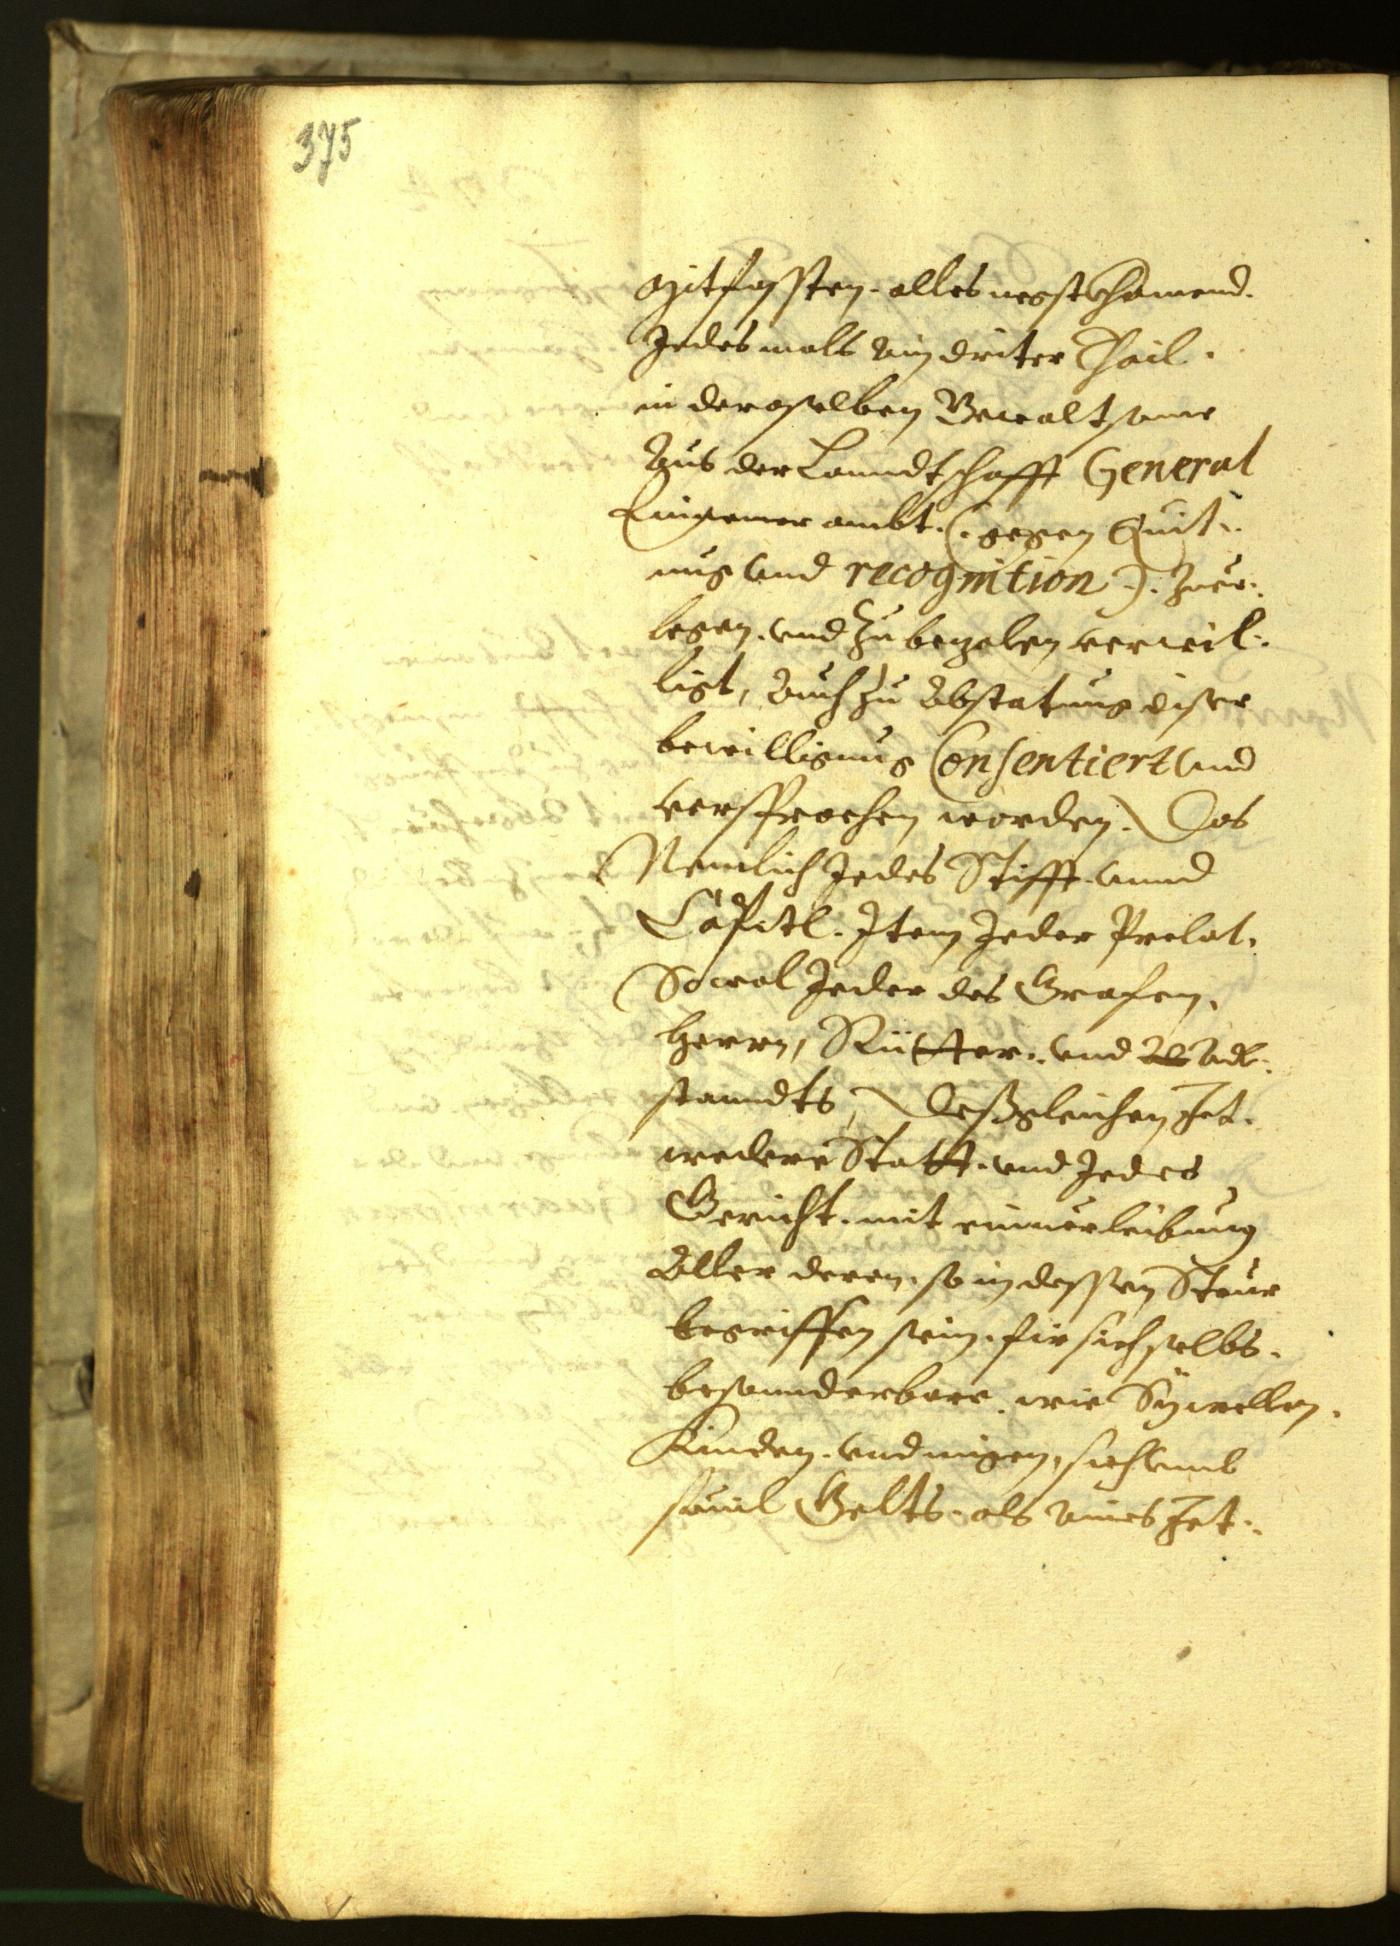 375
Mitfassten. alles negstkhomend.
Jedes mals ain driter Thail.
in deroselben Verwaltsame
Aus der Lanndtschafft General
Einnemer ambt. (: gegen Quit:
nug vnd recognition :). Zuer:
legen. vnd Zu bezalen verwil:
ligt, Auch Zu Abstatung diser
bewilligung Consentiert vnd
versprochen worden. Das
Nemlich Jedes Stifft vnnd
Capitl. Item Jeder Prelat.
Sowol Jeder des Grafen.
Herrn, Ritter: vnd Adl:
standts, Desßgleichen Jet.
wedere Statt. vnd Jedes
Gericht. mit einuerleibung
Aller deren. so in dessen Steur
begriffen sein. fir sich selbs.
besonnderbare. wie Sy wellen.
Kinden. vnd migen, sich vmb
souil Gelts. als aines Jet: